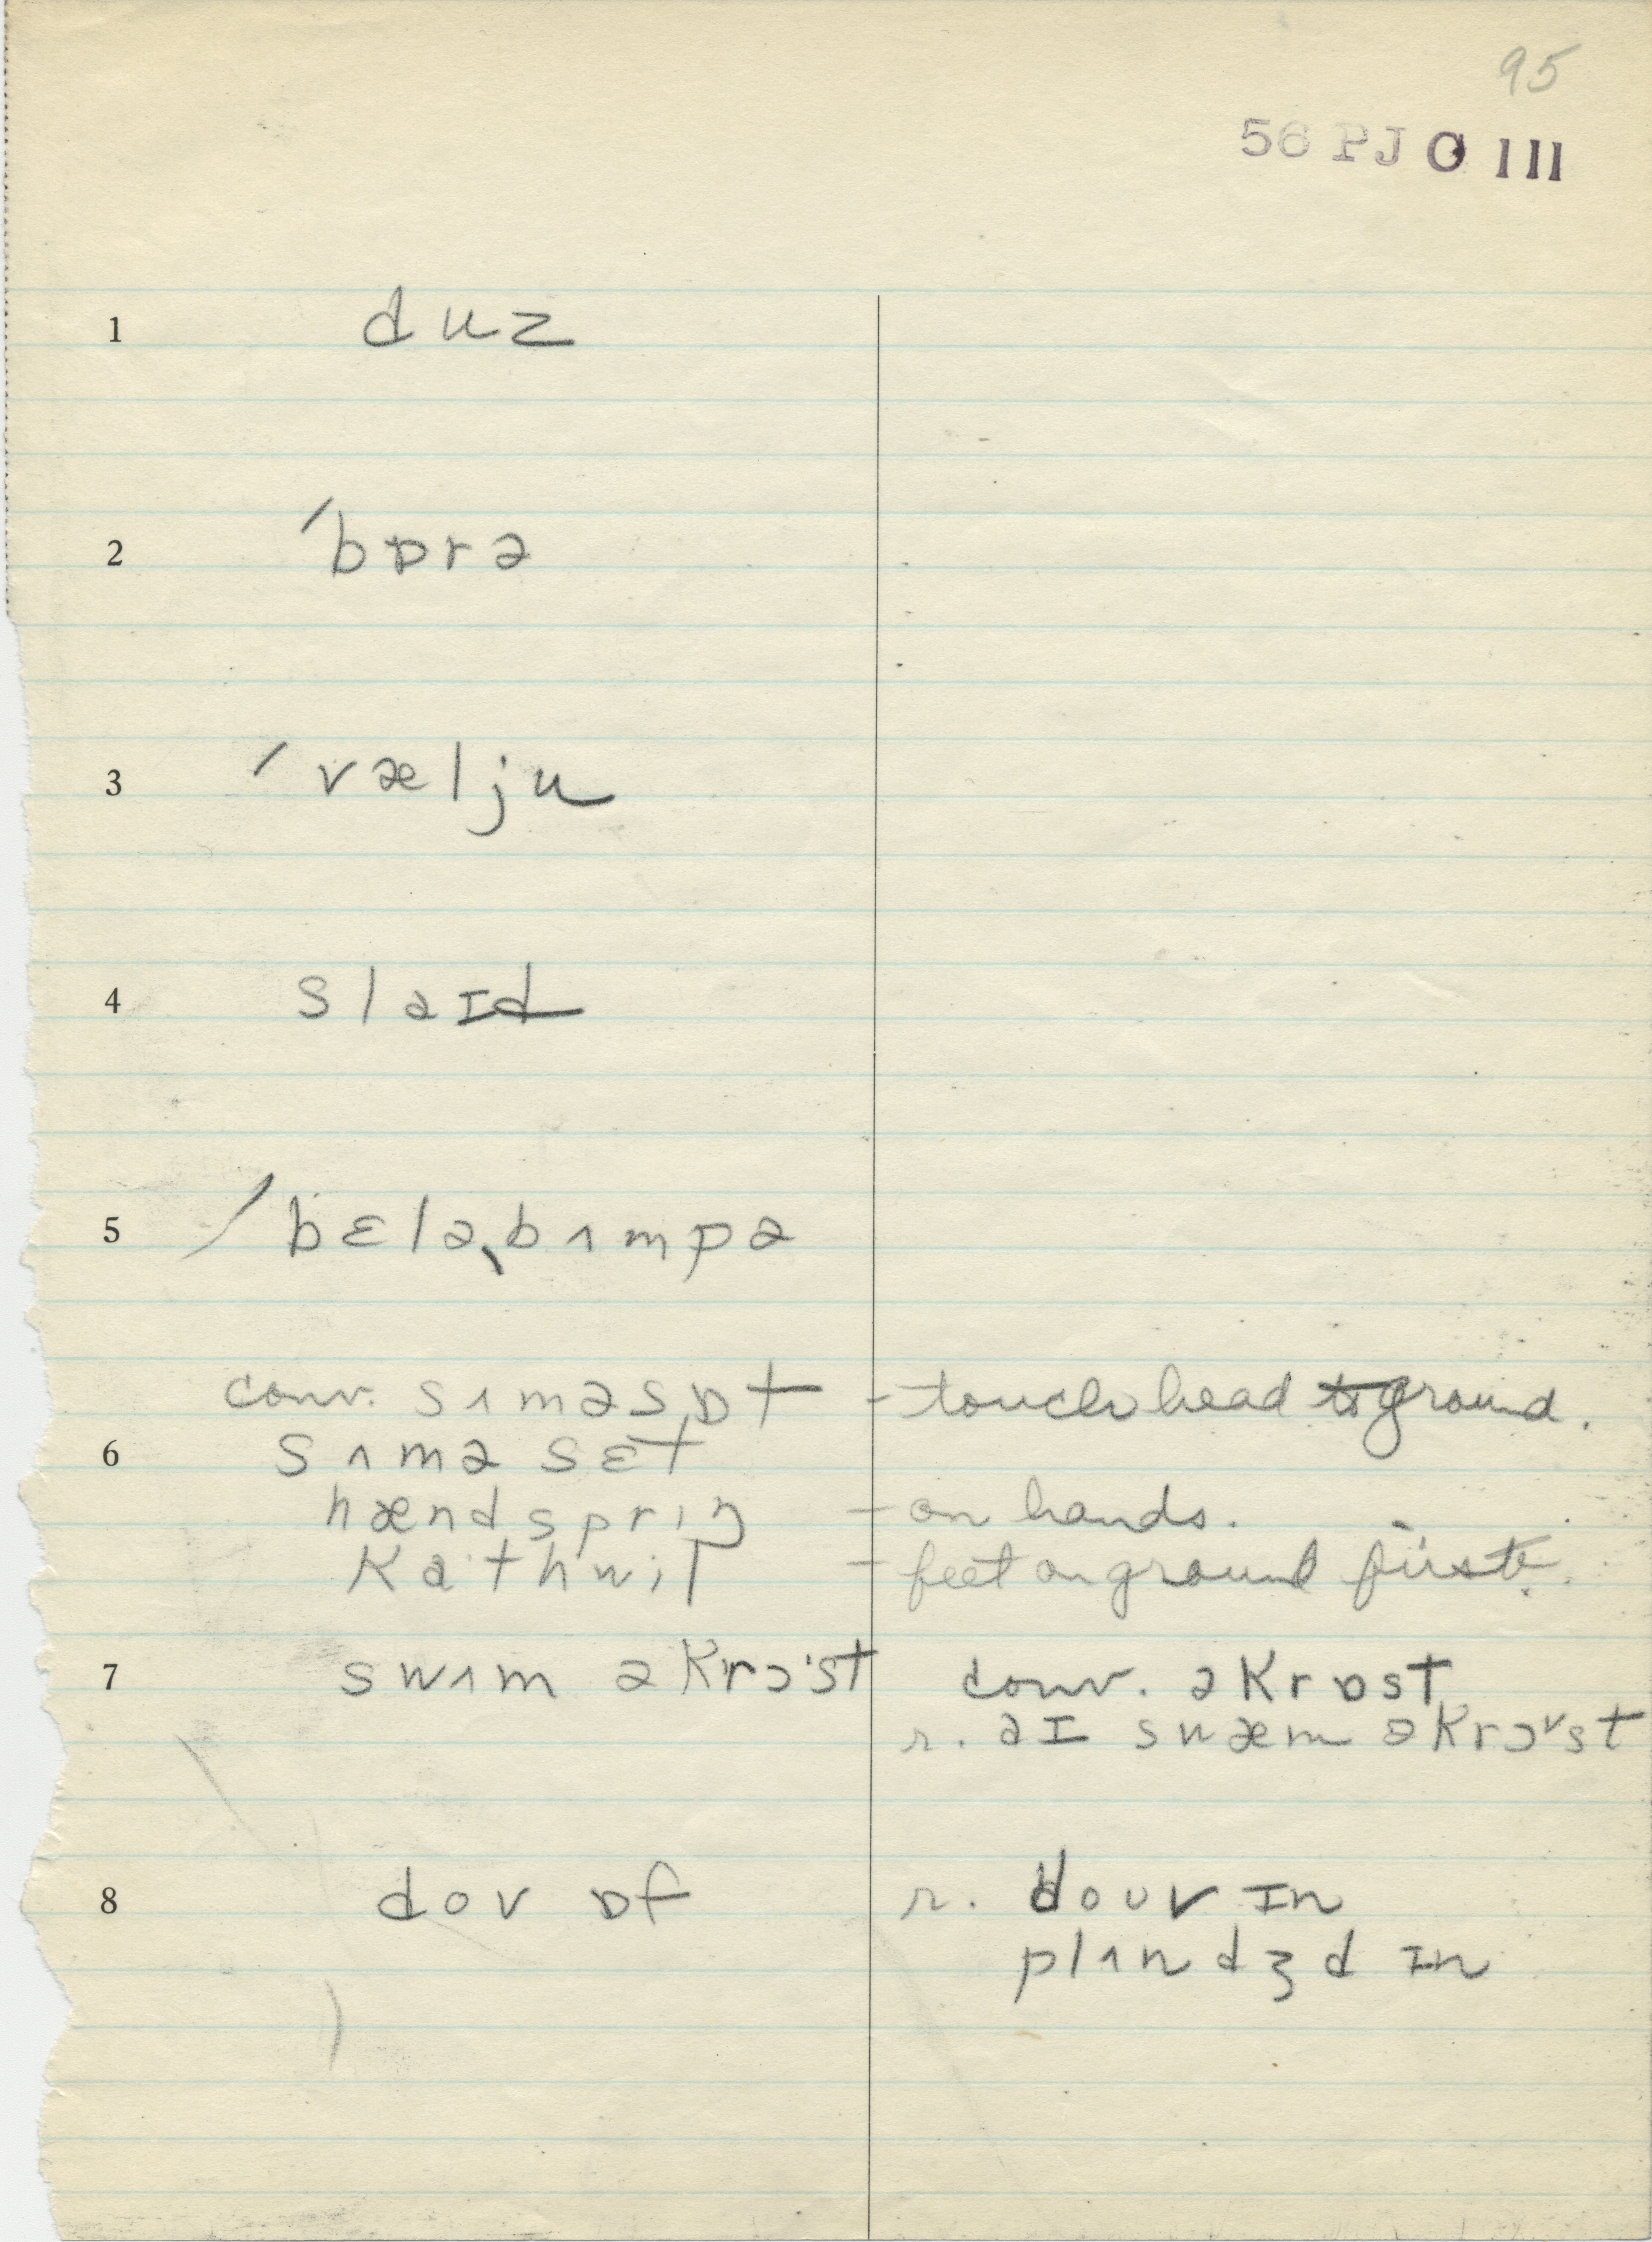 95
56 PJ O 111
1 duz
2 ˊbɒrə
3 ˊvælju
4 slaɪd
5 ˊbɛləˎbʌmpə
conv. sʌməsɒt - touch head to ground.
6 sʌməsɛt
hændspriŋ - on hands.
Kathwil - feet on ground first.
7 swʌm əKrɔ·st conv. əKrɒst
r. aɪ swæm əKrɔˇst
8 dov ɒf r. douv ɪn
plʌndʒd ɪn